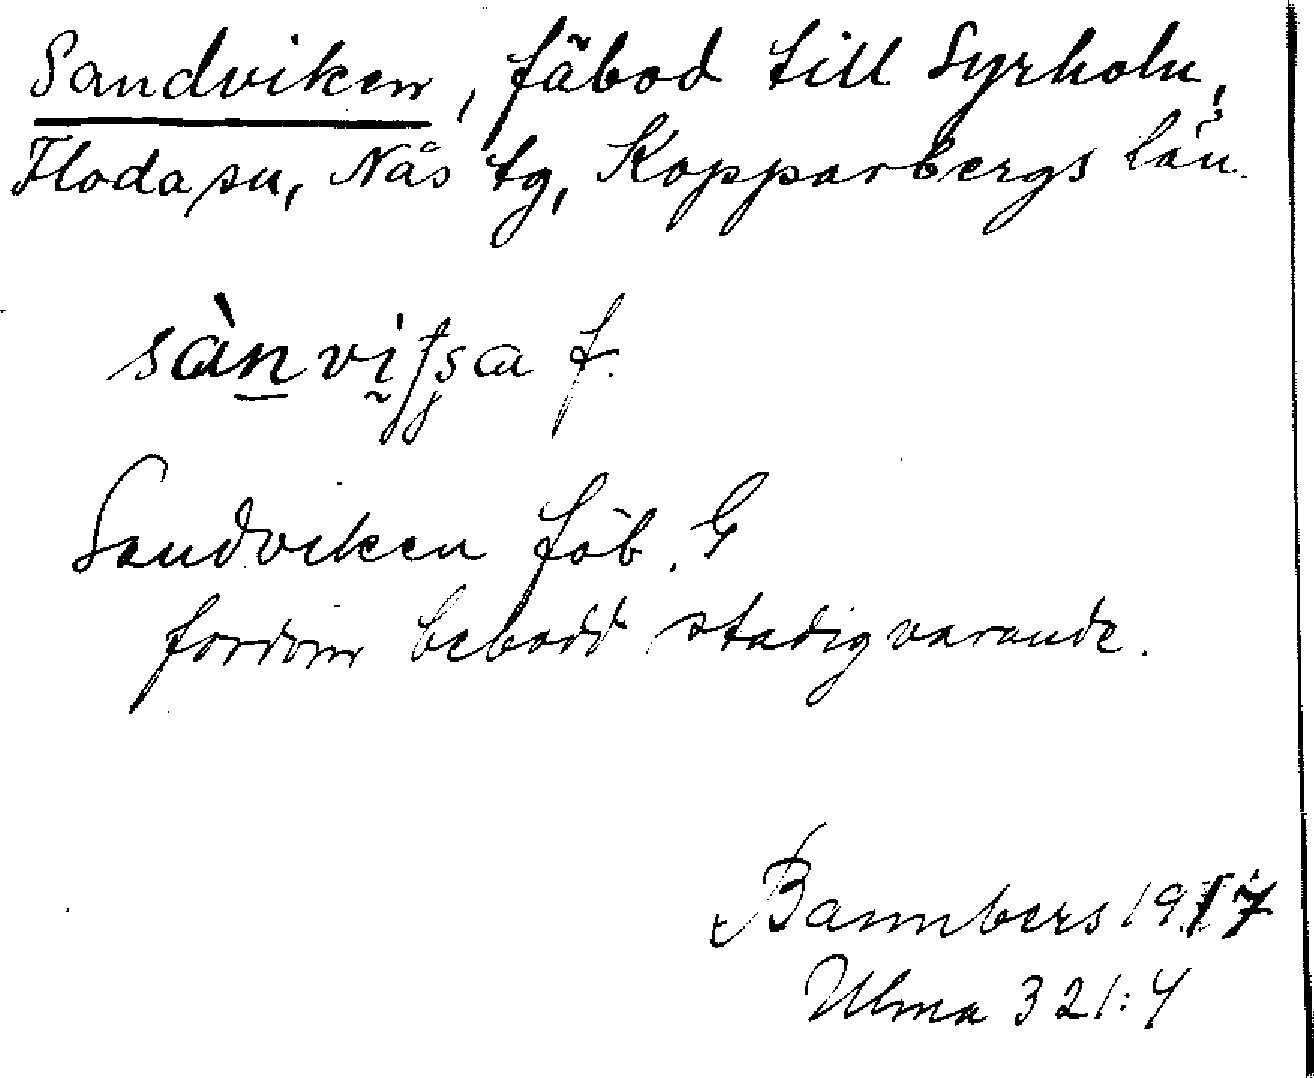 Sandviken, fäbod till Syrholn,
Floda sn, Nås tg, Kopparbergs län.
f.
Sandviken fäb. G
fordom bebodd stadigvarande.
Bannbers 1917
Ulma 321:4